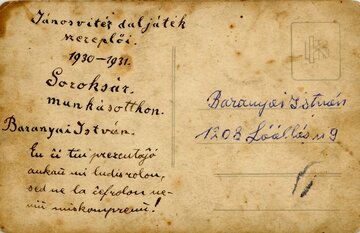 Jánosvitéz daljáték
szereplői.
1930-1931.
Soroksár.
munkásotthon.
Baranyai István.
En ĉi tiu prezentaĵo
ankaŭ mi ludis rolon,
sed ne la ĉefrolon ne-
niu miskomprenu!
Baranyai István
1203 Lóállás u 9